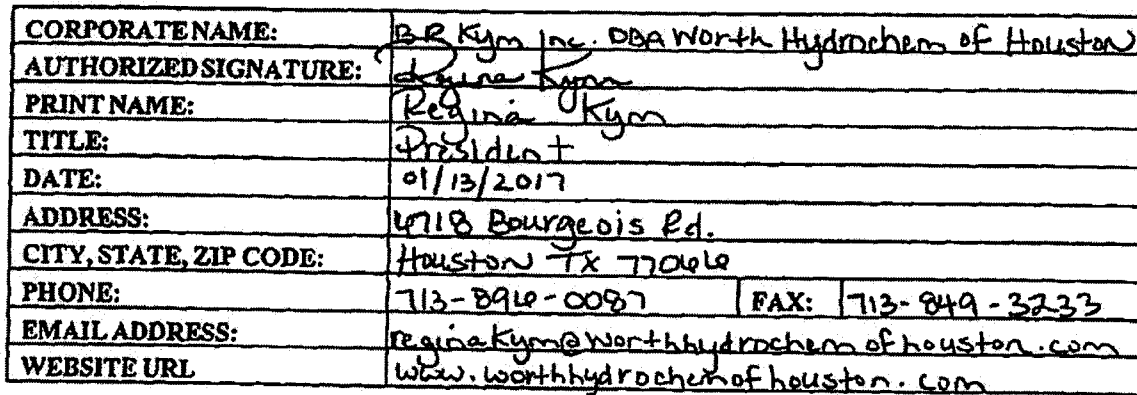 CORPORATE NAME: BR Kym Inc. DBA Worth Hydrochem of Houston
AUTHORIZED SIGNATURE: Regina Kym
PRINT NAME: Regina Kym
TITLE: President
DATE: 01/13/2017
ADDRESS: 4718 Bourgeois Rd.
CITY, STATE, ZIP CODE: Houston TX 77066
PHONE: 713-896-0087 FAX: 713-849-3233
EMAIL ADDRESS: reginakym@worthhydrochemofhouston.com
WEBSITE URL www.worthhydrochemofhouston.com